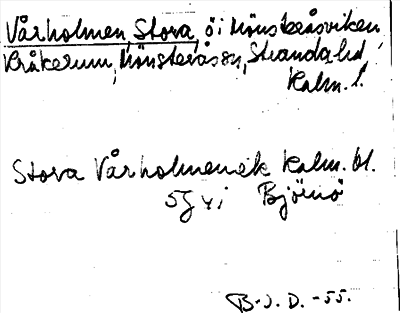 Vårholmen, Stora, ö i Mönsteråsviken
Kråkerum, Mönsterås sn, Stranda hd
Kalm. l.
Stora Vårholmen ek Kalm. bl.
5J Björnö
B.J.D. -55.